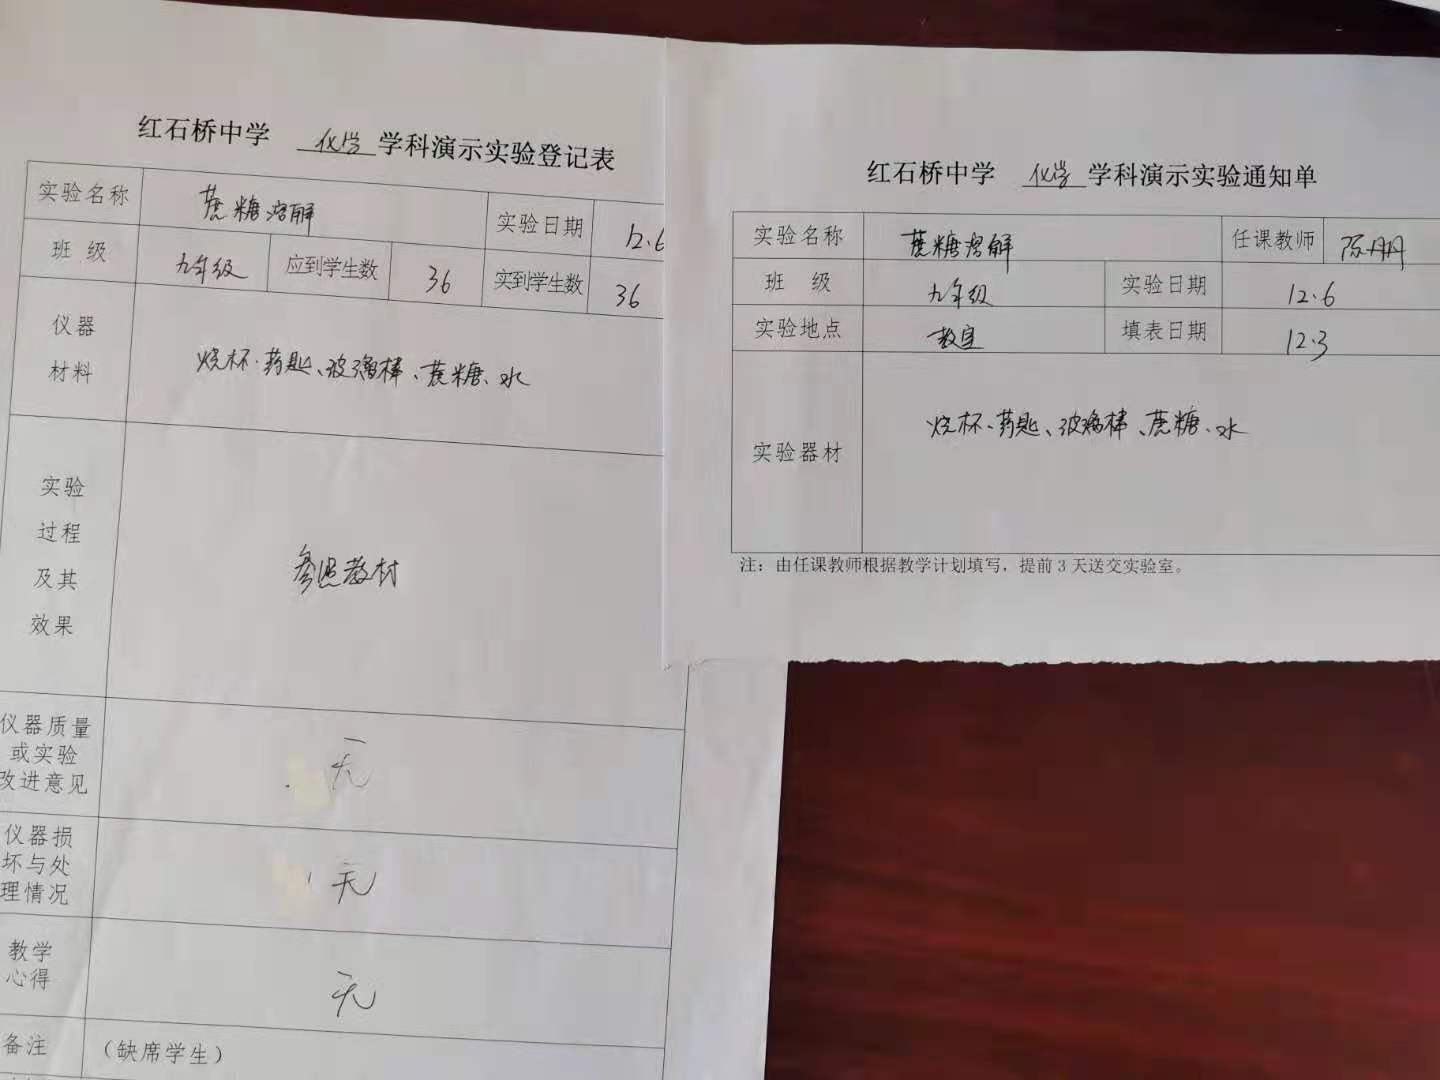 红石桥中学 化学 学科演示实验登记表
实验名称 蔗糖溶解 实验日期 12.6
班 级 九年级 应到学生数 36 实到学生数 36
仪器
材料
烧杯、药匙、玻璃棒、蔗糖、水
实验
过程
及其
效果
参照教材
仪器质量
或实验
改进意见
无
仪器损
坏与处
理情况
无
教学
心得
无
备注 （缺席学生）
红石桥中学 化学 学科演示实验通知单
实验名称 蔗糖溶解 任课教师 陈丹丹
班 级 九年级 实验日期 12.6
实验地点 教室 填表日期 12.3
实验器材 烧杯、药匙、玻璃棒、蔗糖、水
注：由任课教师根据教学计划填写，提前3天送交实验室。